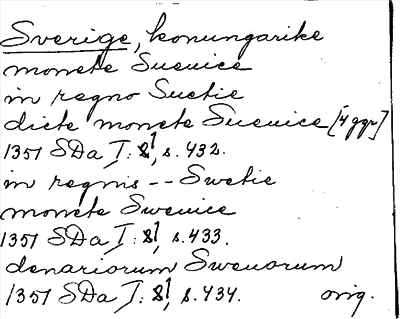 Sverige, konungarike
monete Sueuice
in regno Suetie
dicte monete Sueuice [4 ggr]
1351 SDa I: 81, s. 432.
in regnis -- Swetie
monete Sweuice
1351 SDa I: 81, s. 433.
denariorum Sweuorum
1351 SDa I: 81, s. 434. orig.